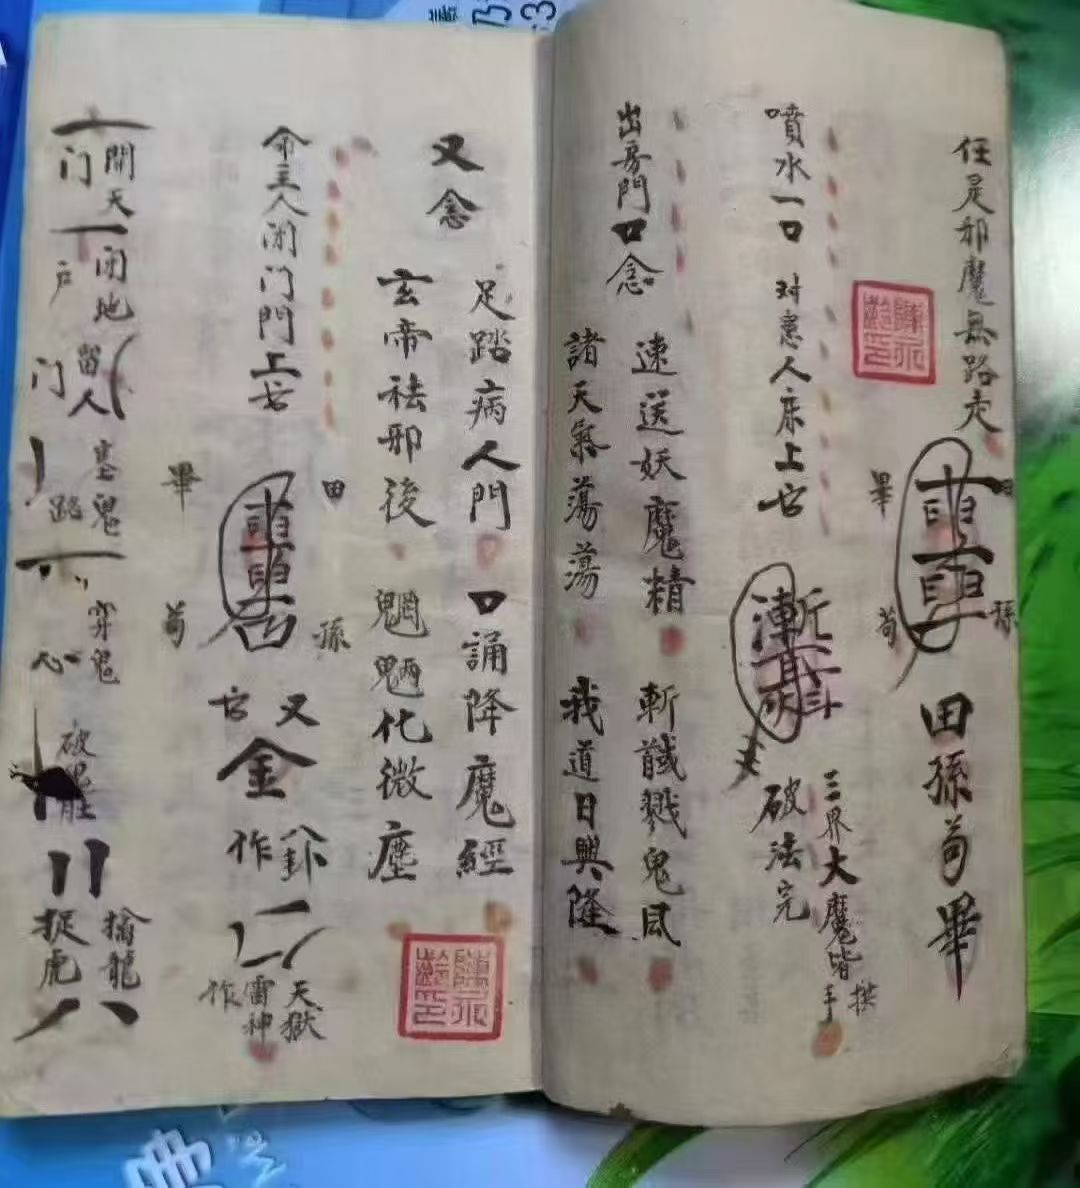 任是邪魔無路走
田孫苟畢
畢
苟
孫
噴水一口 对患人床上书
漸
破法完
三界大魔皆拱手
出房門口念
速送妖魔精 斬馘戮鬼風
諸天氣蕩蕩 我道日興隆
又念
足踏病人門 口誦降魔經
玄帝祛邪後 魍魎化微塵
命主人闭门門上书
田
孫
畢
苟
又书
金
作
天獄
雷神
作
開天
门
闭地
户
留人
门
塞鬼
路
穿鬼
心
破鬼肚
擒龍
捉虎